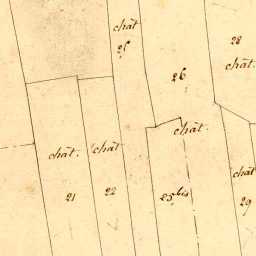 chât
25
28
chât.
26
chât.
chât.
chât
chât
21
22
25 bis
29